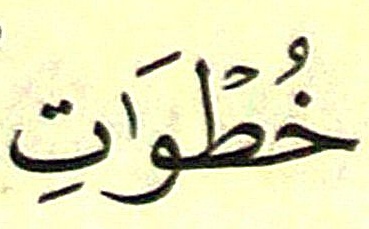 خُطْوَٰتِ